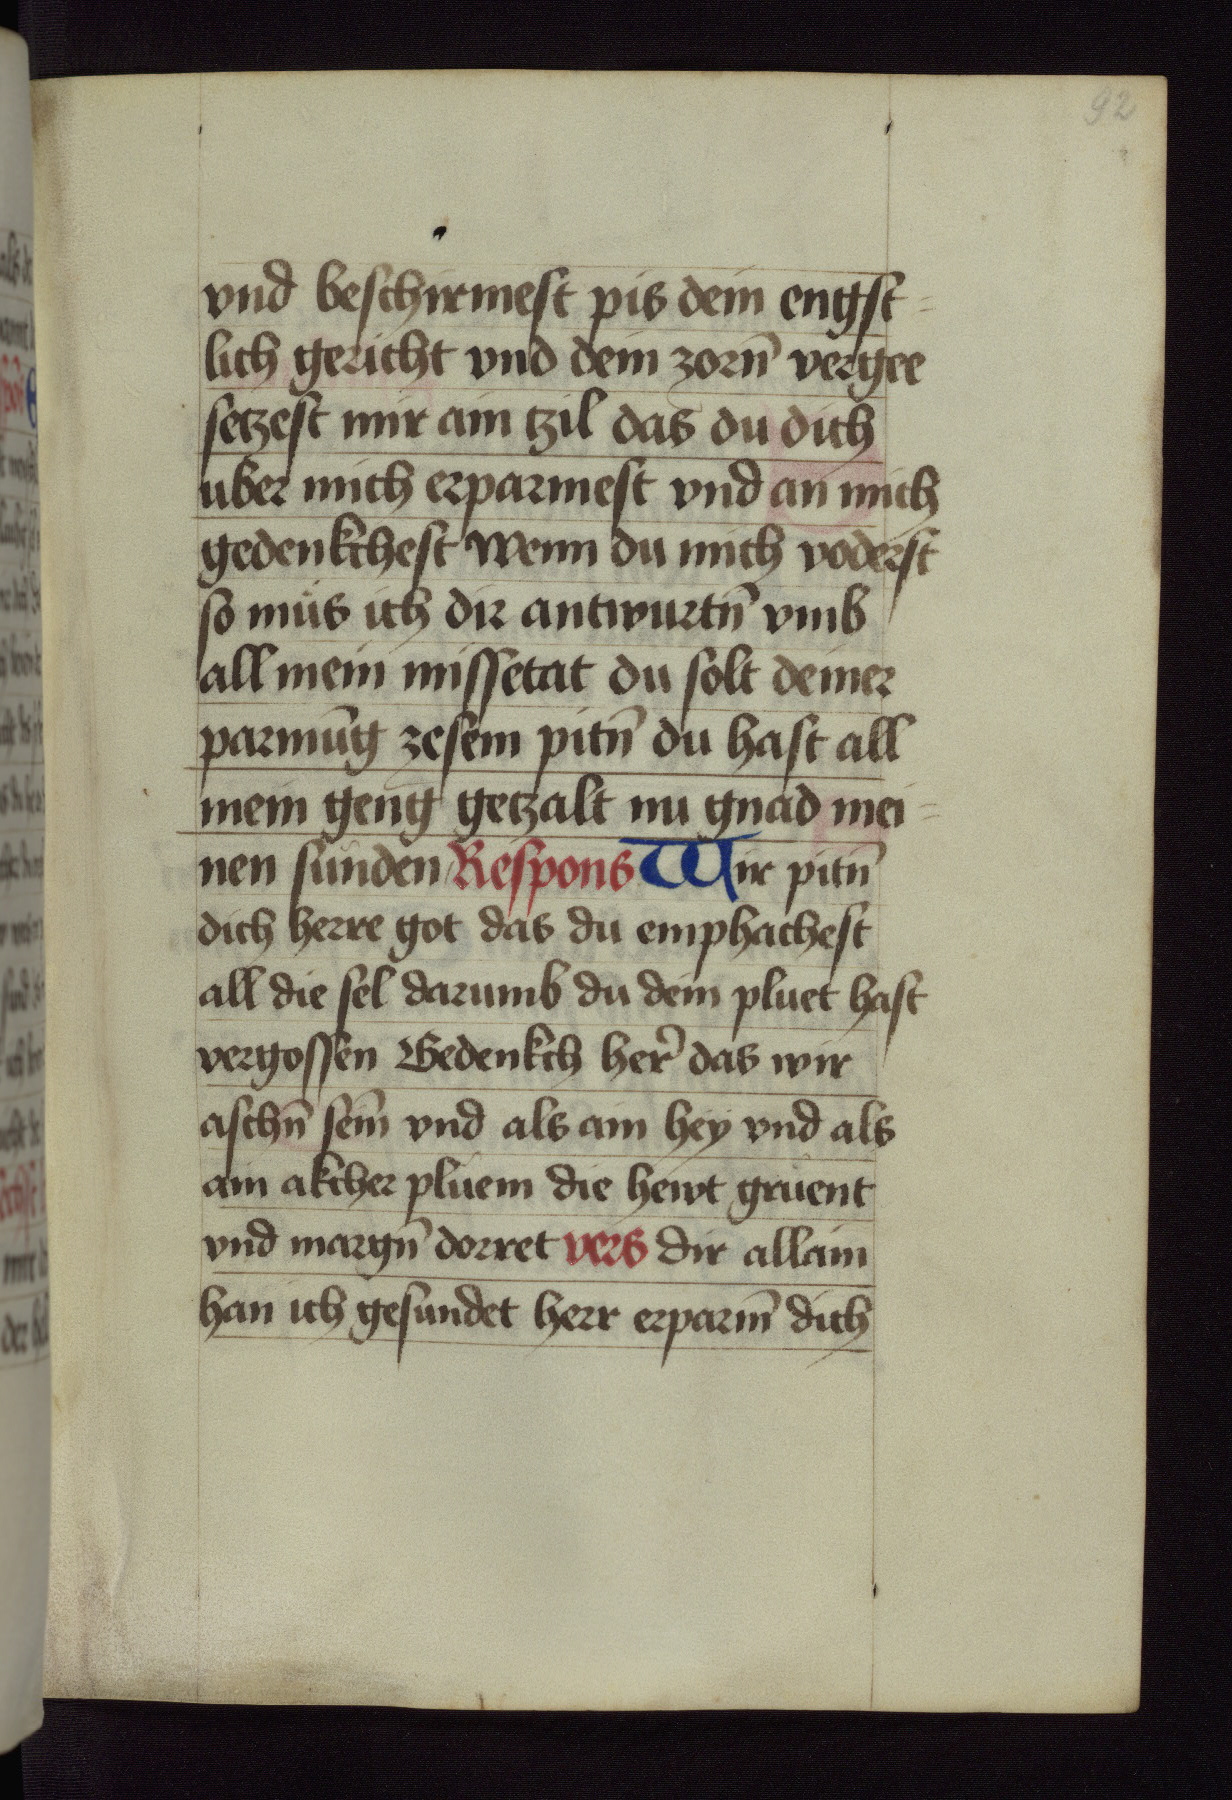 92
vnd beschirmest pis dein engst=
lich gericht vnd dein zorn̄ vergee
setzest mir ain tzil das du dich
uber mich erparmest vnd an mich
gedenkchest Wenn du mich voderst
so mus ich dir antwurtn̄ vmb
all mein missetat du solt deiner
parmūg zesem pitn̄ du hast all
mein geng getzalt nu gnad mei=
nen sunden Respons Wir pitn̄
dich herre got das du emphachest
all die sel darumb du dein pluet hast
vergossen Gedenkch her̄ das wir
aschn̄ sein̄ vnd als ain hey vnd als
ain akcher pluem die hewt gruent
vnd margn̄ dorret vers dir allain
han ich gesundet herr erparm̄ dich